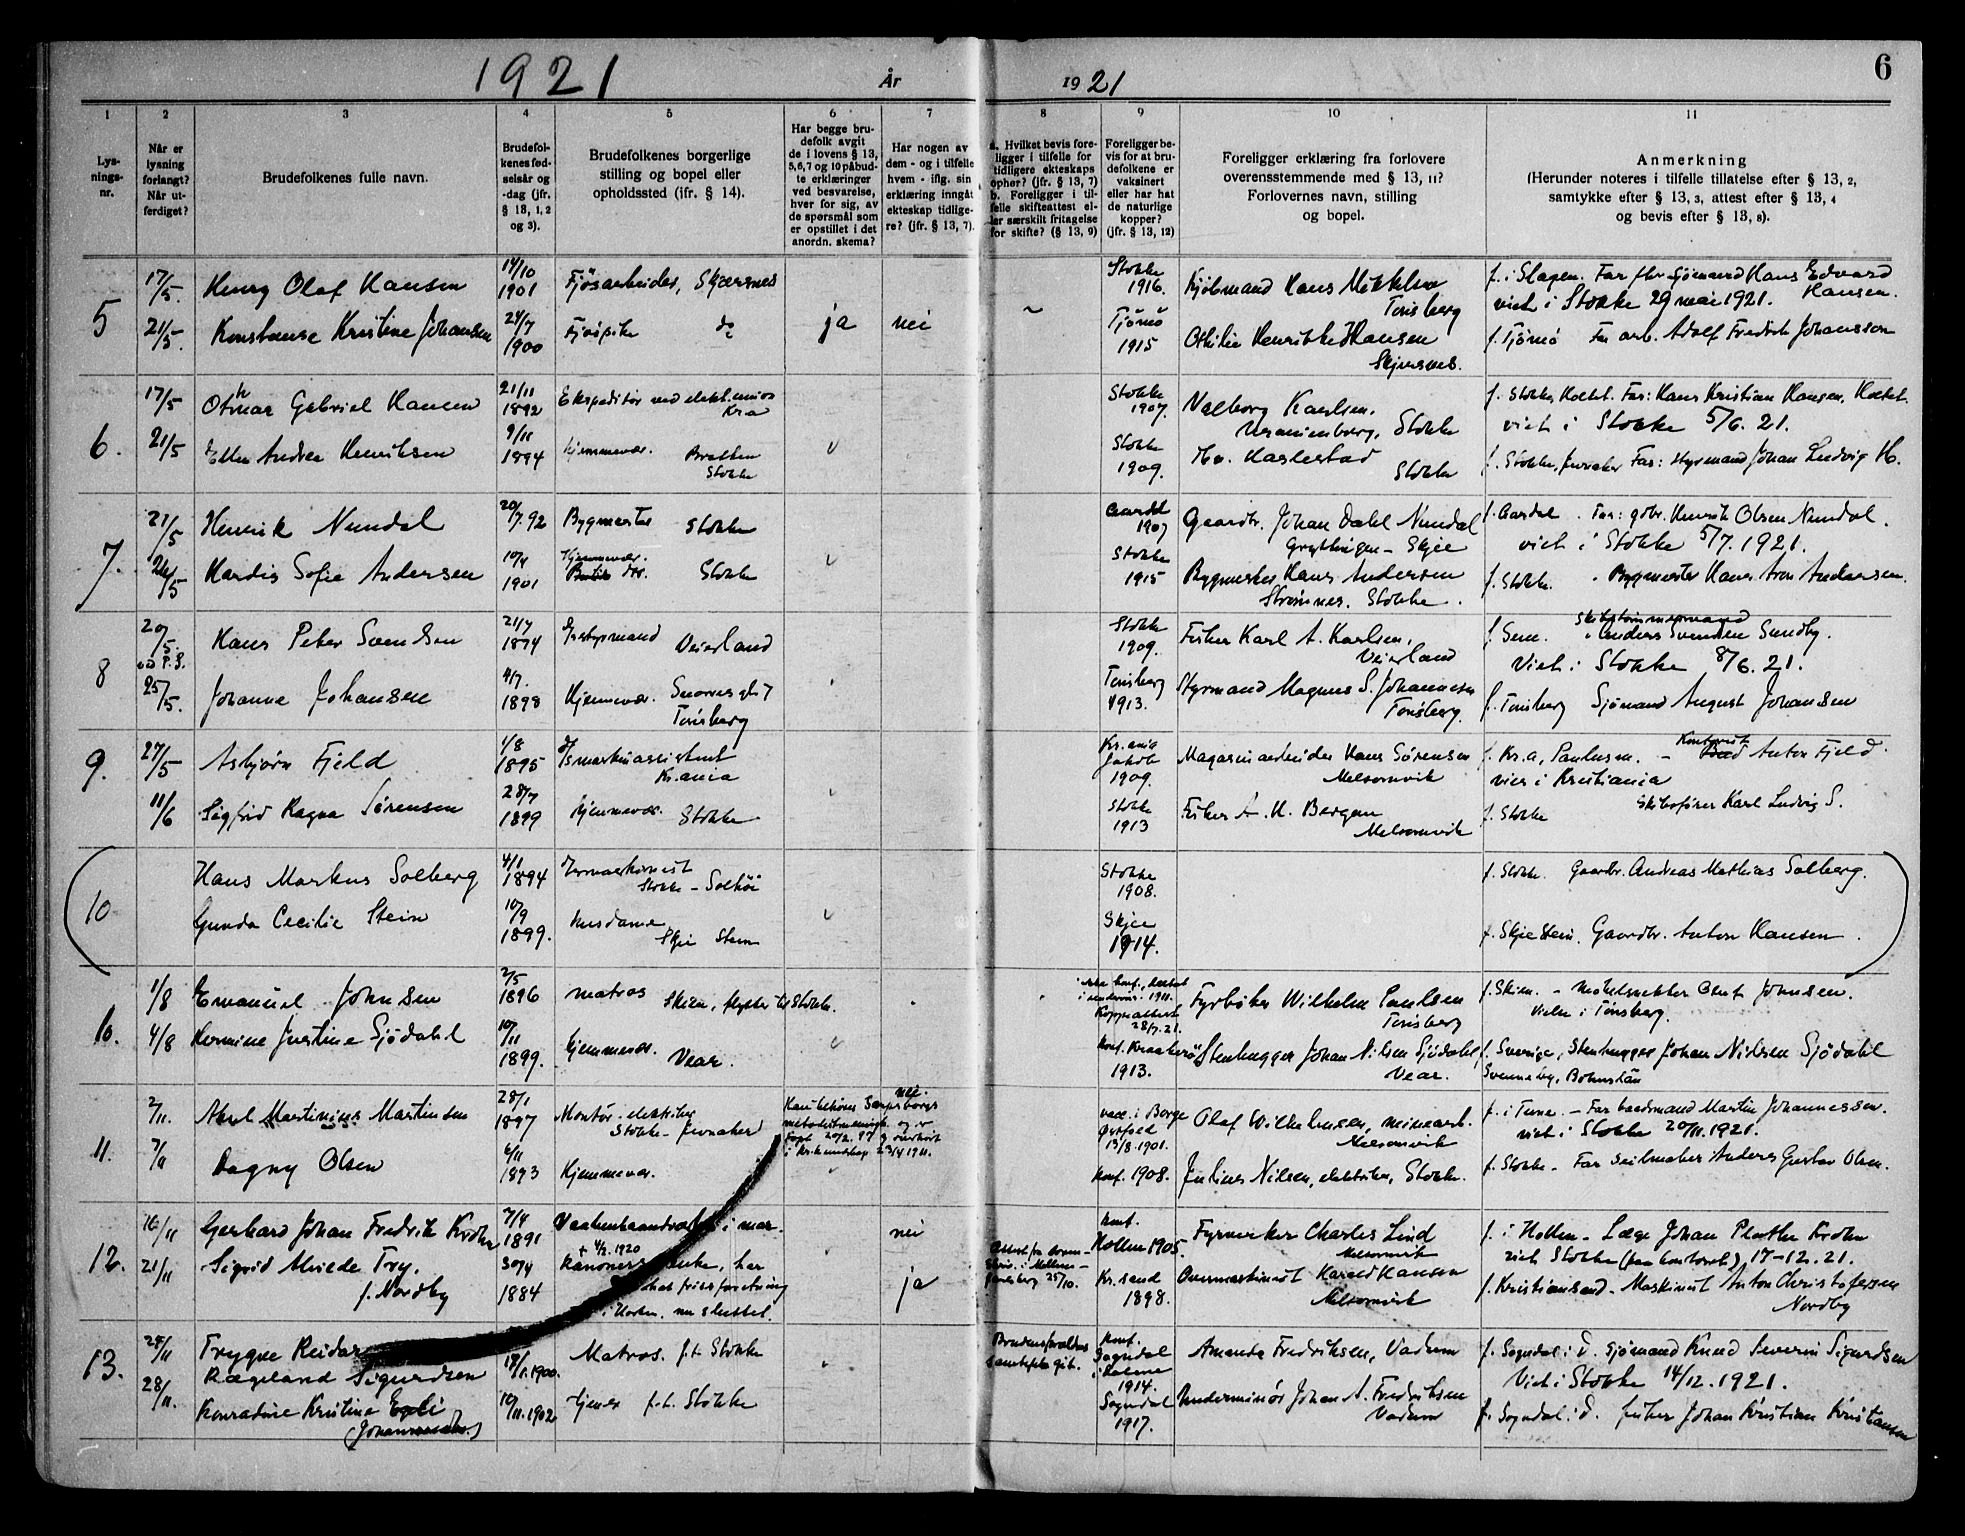 1921 År 1921 6
1 2 3 4 5 6 7 8 9 10 11
Lys-
nings-
nr.
Når er
lysning
forlangt?
Når ut-
ferdiget?
Brudefolkenes fulle navn.
Brudefol-
kenes fød-
selsår og
-dag (jfr.
§ 13, 1, 2
og 3).
Brudefolkenes borgerlige
stilling og bopel eller
opholdssted (ifr. § 14).
Har begge bru-
defolk avgit
de i lovens § 13,
5,6,7 og 10 påbud-
te erklæringer
ved besvarelse,
hver for sig, av
de spørsmål som
er opstillet i det
anordn. skema?
Har nogen av
dem - og i tilfelle
hvem - iflg. sin
erklæring inngåt
ekteskap tidlige-
re? (jfr. § 13, 7).
a. Hvilket bevis fore-
ligger i tilfelle for
tidligere ekteskaps
ophør? (jfr. § 13, 7)
b. Foreligger i til-
felle skifteattest el-
ler særskilt fritagelse
for skifte? (§ 13, 9)
Foreligger be-
vis for at bru-
defolkene er
vaksinert
eller har hat
de naturlige
kopper?
(jfr. § 13, 12)
Foreligger erklæring fra forlovere
overensstemmende med § 13, 11?
Forlovernes navn, stilling
og bopel.
Anmerkning
(Herunder noteres i tilfelle tillatelse efter § 13, 2,
samtykke efter § 13, 3, attest efter § 13, 4
og bevis efter § 13, 8).
5
17/5. Henry Olaf Hansen 14/10 1901 Fjøsarbeider, Skjærsnes
Stokke 1916. Kjøbmand Hans Mikkelsen Tønsberg
f. i Slagen. Far fhv sjømand Hans Edvard Hansen.
viet i Stokke 29 mai 1921.
21/5. Konstanse Kristine Johansen 21/7 1900 Fjøspike do ja nei
Tjømø 1915 Othilie Henrikke Hansen Skjærsnes.
f. Tjømø Far arb. Adolf Fredrik Johansson
6.
17/5 Othmar Gabriel Hansen 21/11 1892 Ekspeditør ved elekt. Kra
Stokke 1907. Valborg Karlsen. Uranienborg, Stokke
f. Stokke, Holtet. Far: Hans Kristian Hansen, Holtet.
viet i Stokke 5/6. 21.
21/5 Ellen Andrea Henriksen 9/11 1894 hjemmevær. Bratten Stokke
Stokke 1909. Hv. Haslestad Stokke
f. Stokke, Far: styrmand Johan Ludvig H.
7.
21/5 Henrik Nundal 20/7. 92 Bygmester Stokke
Aardal 1907 Gaardbr. Johan Dahl Nundal - Skjee
f. Aardal. Far: gbr. Henrik Olsen Nundal.
viet i Stokke 5/7. 1921.
24/5 Hardis Sofie Andersen 10/4 1901 Hjemmevær. Stokke
Stokke 1915 Bygmester Hans Andersen Strømnes. Stokke.
f. Stokke. Bygmester Hans Aron Andersen.
8
20/5. Hans Peter Svendsen 21/7 1874 Veierland
Stokke 1909. Fisker Karl A. Karlsen, Veierland
f. Sem. Skibstømmermand Anders Svendsen Sundby.
Viet i Stokke 8/6. 21.
25/5. Johanne Johansen 4/7. 1898 Hjemmevær. Tønsberg
Tønsberg 1913. Styrmand Magnus S. Johannesen Tønsberg.
f. Tønsberg Sjømand August Johansen
9.
27/5 Asbjørn Fjeld 1/8 1895 Kr.ania
Kr.ania Jakob 1909. Magasinarbeider Hans Sørensen Melsomvik
f. Kr.a, Paulusm. - Anton Fjeld
vies i Kristiania
11/6 Sigfrid Ragna Sørensen 28/7 1899 hjemmevær. Stokke
Stokke 1913 Fisker A. H. Bergan Melsomvik
f. Stokke Skibsfører Karl Ludvig S.
10
Hans Markus Solberg 4/1 1894 Stokke - Solhøi
Stokke 1908. f. Stokke. Gaardbr. Andreas Mathias Solberg.
Gunda Cecilie Stein 10/9 1899. husdame Skjee Stein
Skjee 1914. f. Skjee Stein. Gaardbr. Anton Hansen.
10.
1/8 Emanuel Johnsen 2/5 1896 matros Skien, flytter til Stokke.
Koppeattest 28/7. 21. Fyrbøter Wilhelm Paulsen Tønsberg
f. Skien. - Møbelsnekker Olaf Johnsen.
Vies i Tønsberg.
4/8 Hermine Justine Sjödahl 10/11 1899. hjemmevær. Vear.
konf. Kraakerøi 1913. Stenhugger Johan Nilsen Sjödahl, Vear.
f. Sverige, Stenhugger Johan Nilsen Sjödahl
Svenneby, Bohuslän
11.
2/11. Axel Martinius Martinsen 28/1 1897 Montør - elektriker Stokke - nei.
vacc. i Borge Østfold 13/8. 1901. Olaf Wilhelmsen, minearb. Melsomvik
f. i Tune. - Far baadsmand Martin Johannessen.
viet i Stokke 20/11. 1921.
7/11 Dagny Olsen 6/11 1893 Hjemmevær.
konf. 1908. Julius Nilsen, elektriker, Stokke.
f. Stokke - Far Seilmaker Anders Gustav Olsen.
12.
16/11 Gerhard Johan Fredrik Krohn 7/4 1891 i mar. nei
konf. Hollen 1905. Fyrverker Charles Lind Melsomvik
f. i Hollen - Læge Johan Krohn
viet Stokke (paa kontoret) 17-12. 21.
21/11 Sigrid Try, f. Nordby 30/4 1884 + 4/2. 1920 enke, har i Horten, nu sluttet. ja
Kr.sand 1898. Overmaskinist Harald Hansen Melsomvik
f. Kristiansand. Maskinist Anton Christofersen Nordby
13.
24/11 Trygve Reidar Rægeland Sigurdsen 18/1. 1900. Matros. f.t. Stokke
konf. Sogndal i Dalene 1914. Amanda Fredriksen, Vadum
f. Sogndal i D. Sjømand Knud Severin Sigurdsen
Viet i Stokke 14/12. 1921.
28/11. Konradine Kristine Egeli 10/11. 1902 tjener f.t. Stokke
Sogndal 1917. Underminør Johan A. Fredriksen Vadum
f. Sogndal i D. fisker Johan Kristian Kristiansen